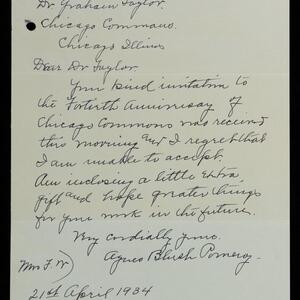 Dr. Graham Taylor.
Chicago Commons.
Chicago Illinois
Dear Dr Taylor.
Your kind invitation to
the Fortieth Anniversary of
Chicago Commons was received
this morning and I regret that
I am unable to accept.
Am inclosing a little extra
gift and hope greater things
for your work in the future.
Very cordially yours.
Agnes Pomeroy.
(Mrs F. W)
21st April 1934